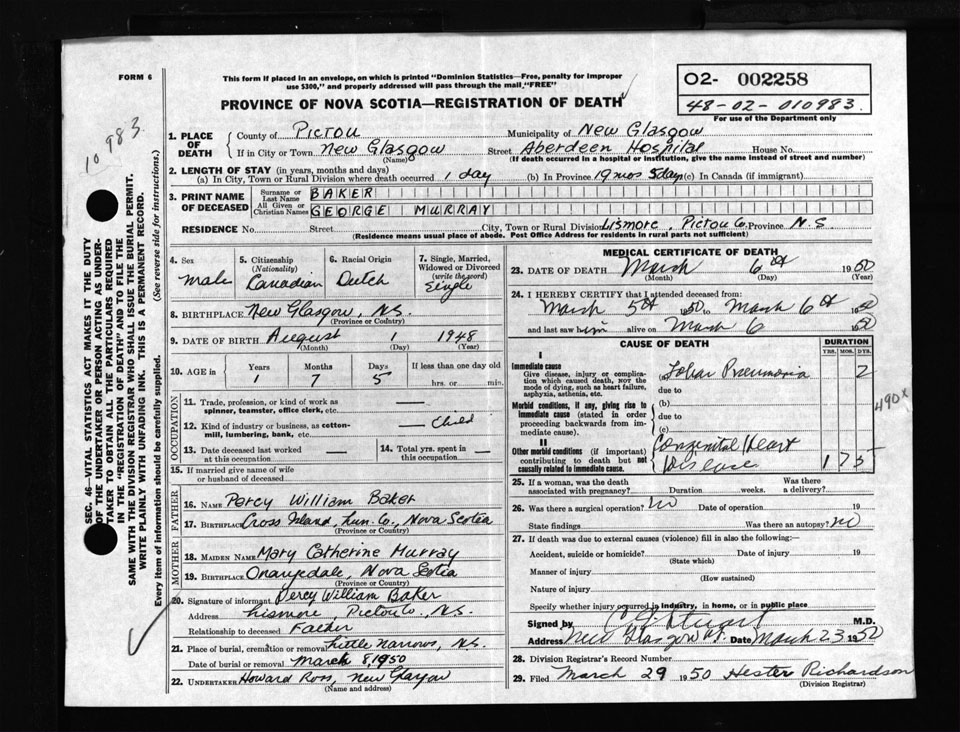 FORM 6
This form if placed in an envelope, on which is printed "Dominion Statistics—Free, penalty for improper
use $300," and properly addressed will pass through the mail, "FREE"
PROVINCE OF NOVA SCOTIA—REGISTRATION OF DEATH
02- 002258
48-02-010983
For use of the Department only
10983
SEC. 46—VITAL STATISTICS ACT MAKES IT THE DUTY
OF THE UNDERTAKER OR PERSON ACTING AS UNDER-
TAKER TO OBTAIN ALL THE PARTICULARS REQUIRED
IN THE "REGISTRATION OF DEATH" AND TO FILE THE
SAME WITH THE DIVISION REGISTRAR WHO SHALL ISSUE THE BURIAL PERMIT.
WRITE PLAINLY WITH UNFADING INK. THIS IS A PERMANENT RECORD.
Every item of information should be carefully supplied. (See reverse side for instructions.)
1. PLACE OF DEATH County of Pictou Municipality of New Glasgow
If in City or Town New Glasgow Street Aberdeen Hospital House No.
(Name) (If death occurred in a hospital or institution, give the name instead of street and number)
2. LENGTH OF STAY (in years, months and days)
(a) In City, Town or Rural Division where death occurred 1 day (b) In Province 19 mos 5 days (c) In Canada (if immigrant)
3. PRINT NAME OF DECEASED Surname or Last Name BAKER
All Given or Christian Names GEORGE MURRAY
RESIDENCE No. Street City, Town or Rural Division Lismore, Pictou Co. Province N.S
(Residence means usual place of abode. Post Office Address for residents in rural parts not sufficient)
4. Sex male
5. Citizenship (Nationality) Canadian
6. Racial Origin Dutch
7. Single, Married, Widowed or Divorced (write the word) Single
8. BIRTHPLACE New Glasgow, N.S.
(Province or Country)
9. DATE OF BIRTH August 1 1948
(Month) (Day) (Year)
10. AGE in Years Months Days If less than one day
1 7 5 hrs. or min.
OCCUPATION
11. Trade, profession, or kind of work as
spinner, teamster, office clerk, etc. —
12. Kind of industry or business, as cotton-
mill, lumbering, bank, etc. — Child
13. Date deceased last worked at this occupation —
14. Total yrs. spent in this occupation —
15. If married give name of wife
or husband of deceased
FATHER
16. NAME Percy William Baker
17. BIRTHPLACE Cross Island, Lun. Co., Nova Scotia
(Province or Country)
MOTHER
18. MAIDEN NAME Mary Catherine Murray
19. BIRTHPLACE Orangedale, Nova Scotia
(Province or Country)
20. Signature of informant Percy William Baker
Address Lismore Pictou Co., N.S.
Relationship to deceased Father
21. Place of burial, cremation or removal Little Narrows, N.S.
Date of burial or removal March 8, 1950
22. UNDERTAKER Howard Ross, New Glasgow
(Name and address)
MEDICAL CERTIFICATE OF DEATH
23. DATE OF DEATH March 6th 1950
(Month) (Day) (Year)
24. I HEREBY CERTIFY that I attended deceased from:
March 5th 1950 to March 6th 1950
and last saw him alive on March 6 1950
CAUSE OF DEATH DURATION
YRS. MOS. DYS.
I
Immediate cause
Give disease, injury or complica-
tion which caused death, nor the
mode of dying, such as heart failure,
asphyxia, asthenia, etc.
(a) Lobar Pneumonia 2
due to
Morbid conditions, if any, giving rise to
immediate cause (stated in order
proceeding backwards from im-
mediate cause).
(b)
due to
(c)
490x
II
Other morbid conditions (if important)
contributing to death but not
causally related to immediate cause.
Congenital Heart
Disease 1 7 5
25. If a woman, was the death Was there
associated with pregnancy? Duration weeks. a delivery?
26. Was there a surgical operation? No Date of operation 19
State findings Was there an autopsy? No
27. If death was due to external causes (violence) fill in also the following:—
Accident, suicide or homicide? Date of injury 19
(State which)
Manner of injury
(How sustained)
Nature of injury
Specify whether injury occurred in industry, in home, or in public place
Signed by Stuart M.D.
Address New Glasgow N.S. Date March 23 1950
28. Division Registrar's Record Number
29. Filed March 29 1950 Hester Richardson
(Division Registrar)